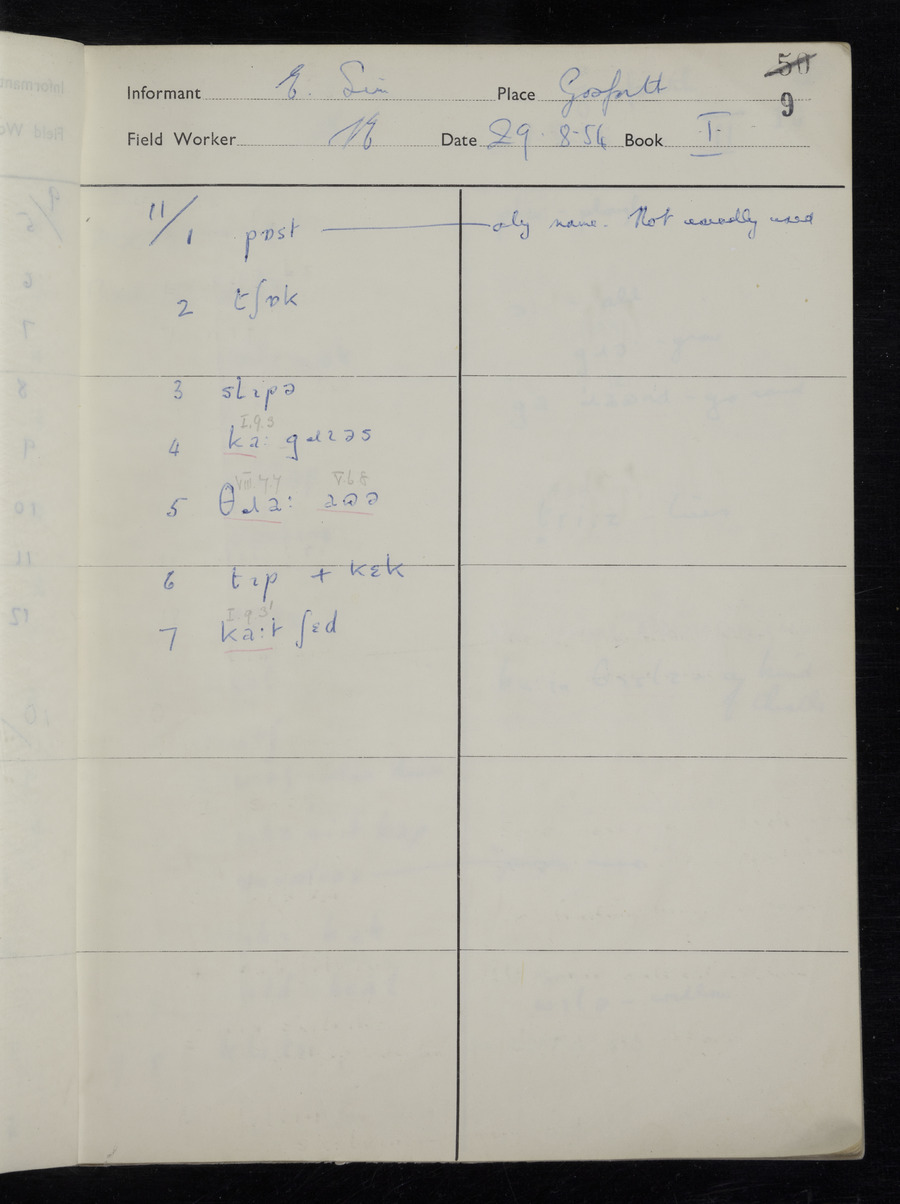 50
Informant E. Sim Place Gosforth
9
Field Worker Date 29 8-54 Book I
11/1 pɒst only name. Not used
2 tʃɒk
3 slɪpə
I.9.3
4 ka:
VIII.7.7 V.6.8
5
6 tɪp + kɛk
I.9.3
7 ka:t ʃɛd